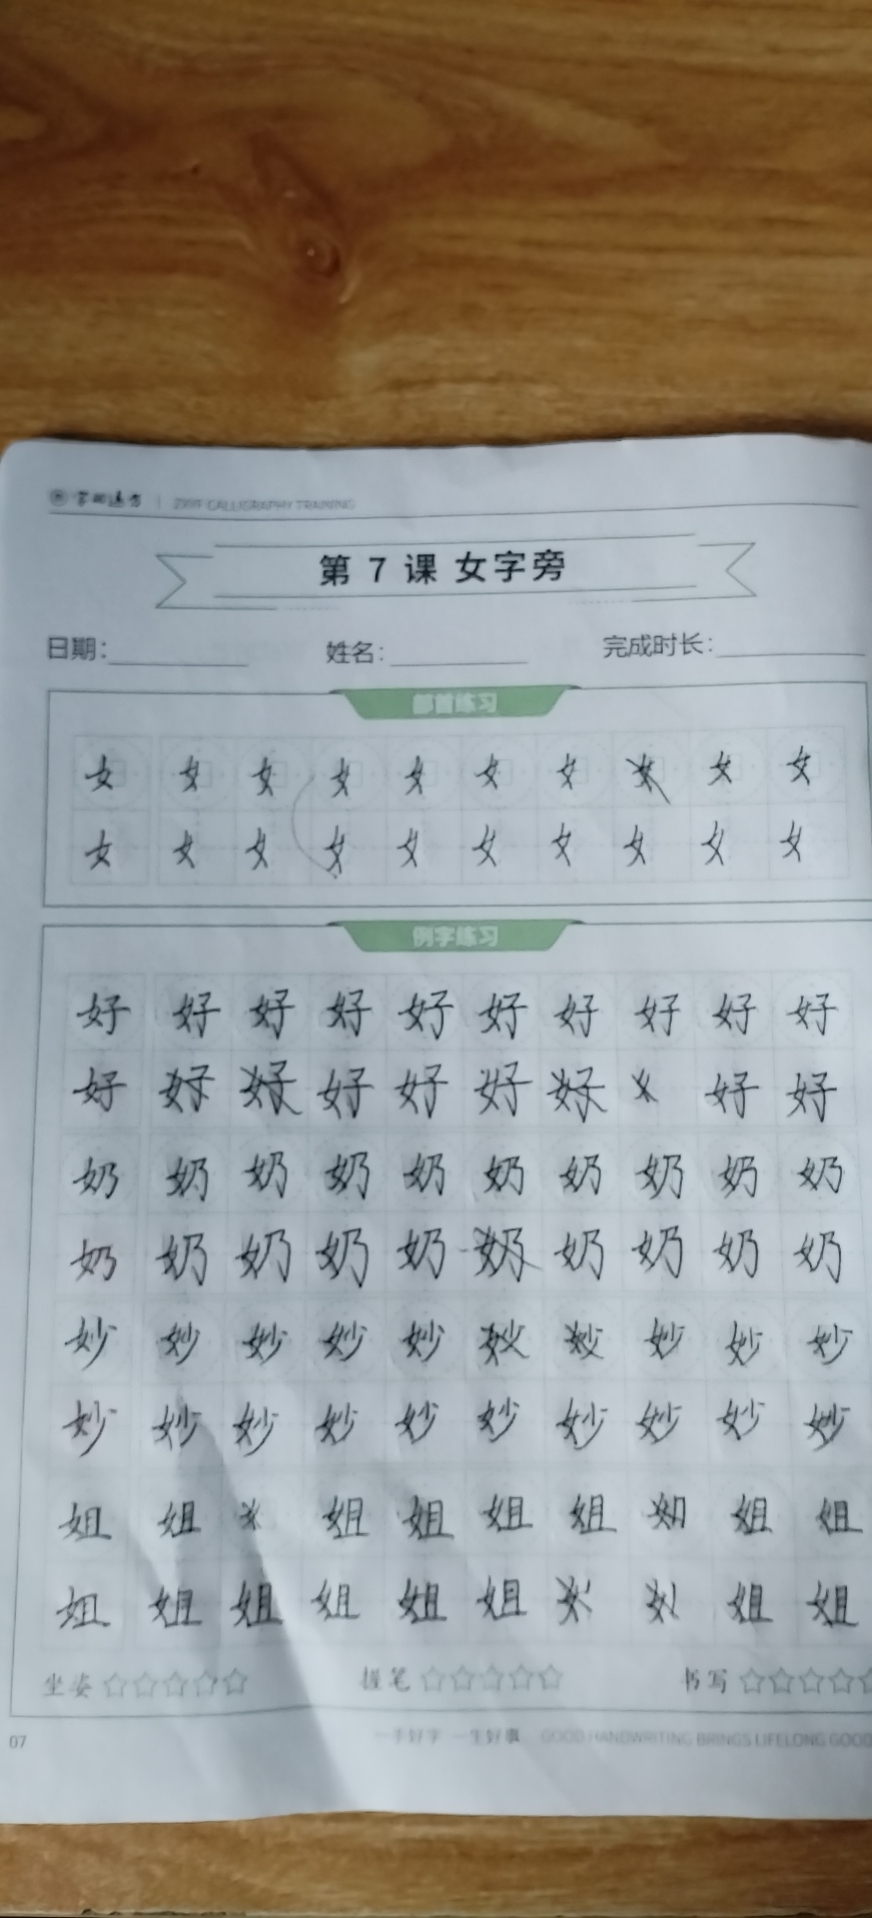 CALLIGRAPHY TRAINING
第 7 课 女字旁
日期: 姓名: 完成时长:
部首练习
女 女 女 女 女 女 女 女 女 女
女 女 女 女 女 女 女 女 女 女
例字练习
好 好 好 好 好 好 好 好 好 好
好 好 好 好 好 好 好 好 好
奶 奶 奶 奶 奶 奶 奶 奶 奶 奶
奶 奶 奶 奶 奶 奶 奶 奶 奶 奶
妙 妙 妙 妙 妙 妙 妙 妙
妙 妙 妙 妙 妙 妙 妙 妙 妙 妙
姐 姐 姐 姐 姐 姐 姐 姐
姐 姐 姐 姐 姐 姐 姐 姐
坐姿 握笔 书写
07 一手好字 一生好事 GOOD HANDWRITING BRINGS LIFELONG GOOD